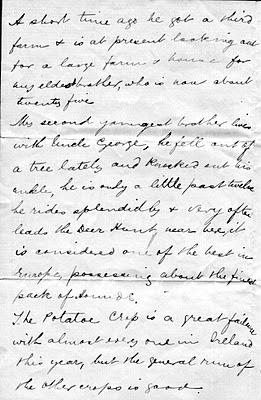 A short time ago he got a third
farm & is at present looking out
for a large farm & house for
my eldest brother, who is now about
twenty five
My second youngest brother lives
with Uncle George, he fell out of
a tree lately and knocked out his
ankle, he is only a little past twelve
he rides splendidly & very often
leads the Deer Hunt, near here, it
is considered one of the best in
Europe, possessing about the finest
pack of Hounds.
The Potatoe Crop is a great failure
with almost every one in Ireland
this year, but the general run of
the other crops is good.